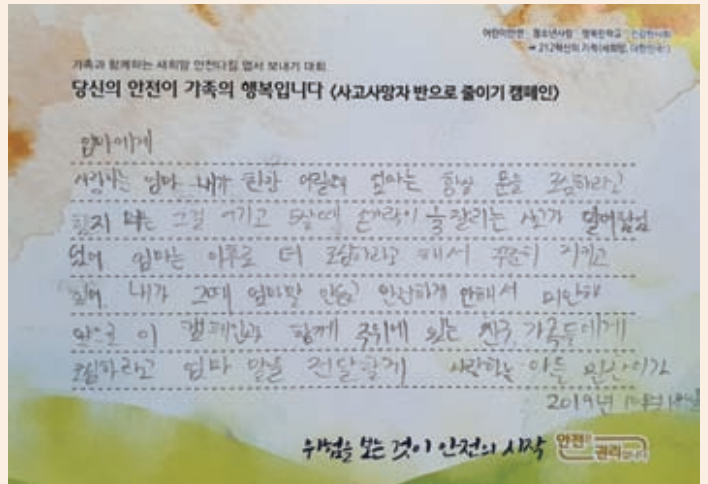 어린이안전 청소년사랑 행복한학교 건강한사회
가족과 함께하는 새희망 안전다짐 엽서 보내기 대회
당신의 안전이 가족의 행복입니다 <사고사망자 반으로 줄이기 캠페인>
엄마에게
사랑하는 엄마 내가 한창 어릴때 엄마는 항상 문을 조심하라고
했지 나는 그걸 어기고 5살때 손가락이 잘리는 사고가 일어났었
엄마는 이후로 더 조심하라고 해서 꾸준히 지키고
있어 내가 그때 엄마말 안듣고 안전하게 안해서 미안해
앞으로 이 캠페인과 함께 주위에 있는 친구, 가족들에게
조심하라고 엄마 말을 전달할게 사랑하는 아들
2019년
위험을 보는 것이 안전의 시작
안전은
권리입니다